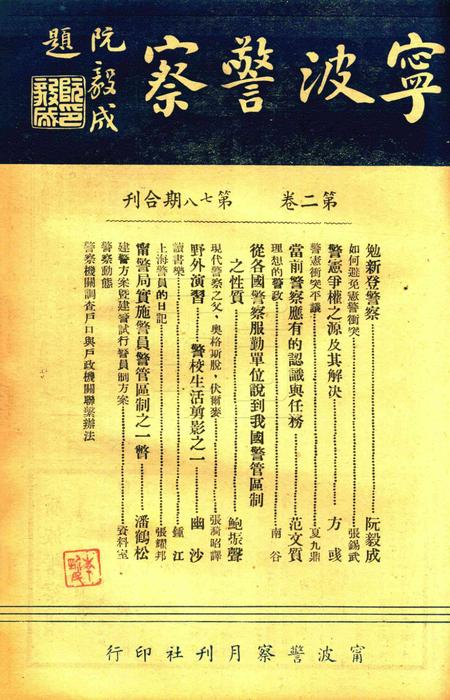 寧波警察
阮毅成題
阮毅成印
第二卷 第七八期合刊
勉新登警察 阮毅成
如何避免憲警衝突 張錫武
警憲爭權之源及其解決 方彧
警憲衝突平議 夏九鼎
當前警察應有的認識與任務 范文質
理想的警政 南谷
從各國警察服勤單位說到我國警管區制之性質 鮑振聲
現代警察之父，奧格斯脫，伏爾麥 張漪昭譯
野外演習——警校生活剪影之一 幽沙
讀書樂 鍾江
上海警員的日記 張耀邦
甯警局實施警員警管區制之一瞥 潘鶴松
建警方案暨建警試行警員制方案 資料室
警察動態
警察機關調查戶口與戶政機關聯繫辦法
甯波警察月刊社印行